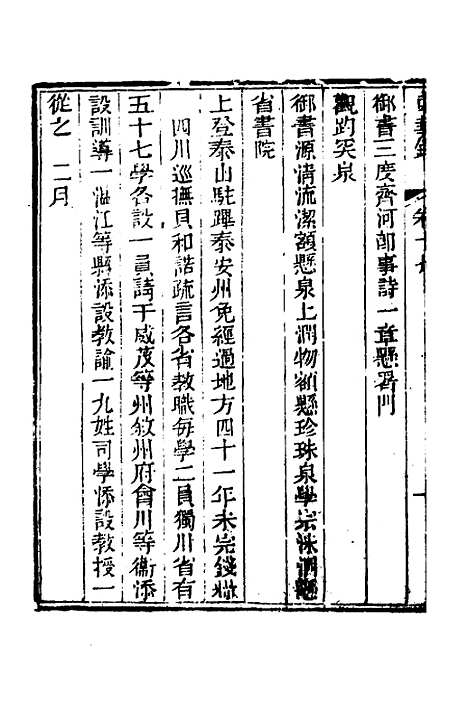 東華錄 卷十七
御書三度齊河卽事詩一章懸署門
觀趵突泉
御書源清流潔額懸泉上潤物額懸珍珠泉學宗洙泗懸
省書院
上登泰山駐蹕泰安州免經過地方四十一年未完錢糧
四川巡撫貝和諾疏言各省教職每學二員獨川省有
五十七學各設一員請于威茂等州敘州府會川等衞添
設訓導一湔江等縣添設教諭一九姓司學添設教授一
從之 二月